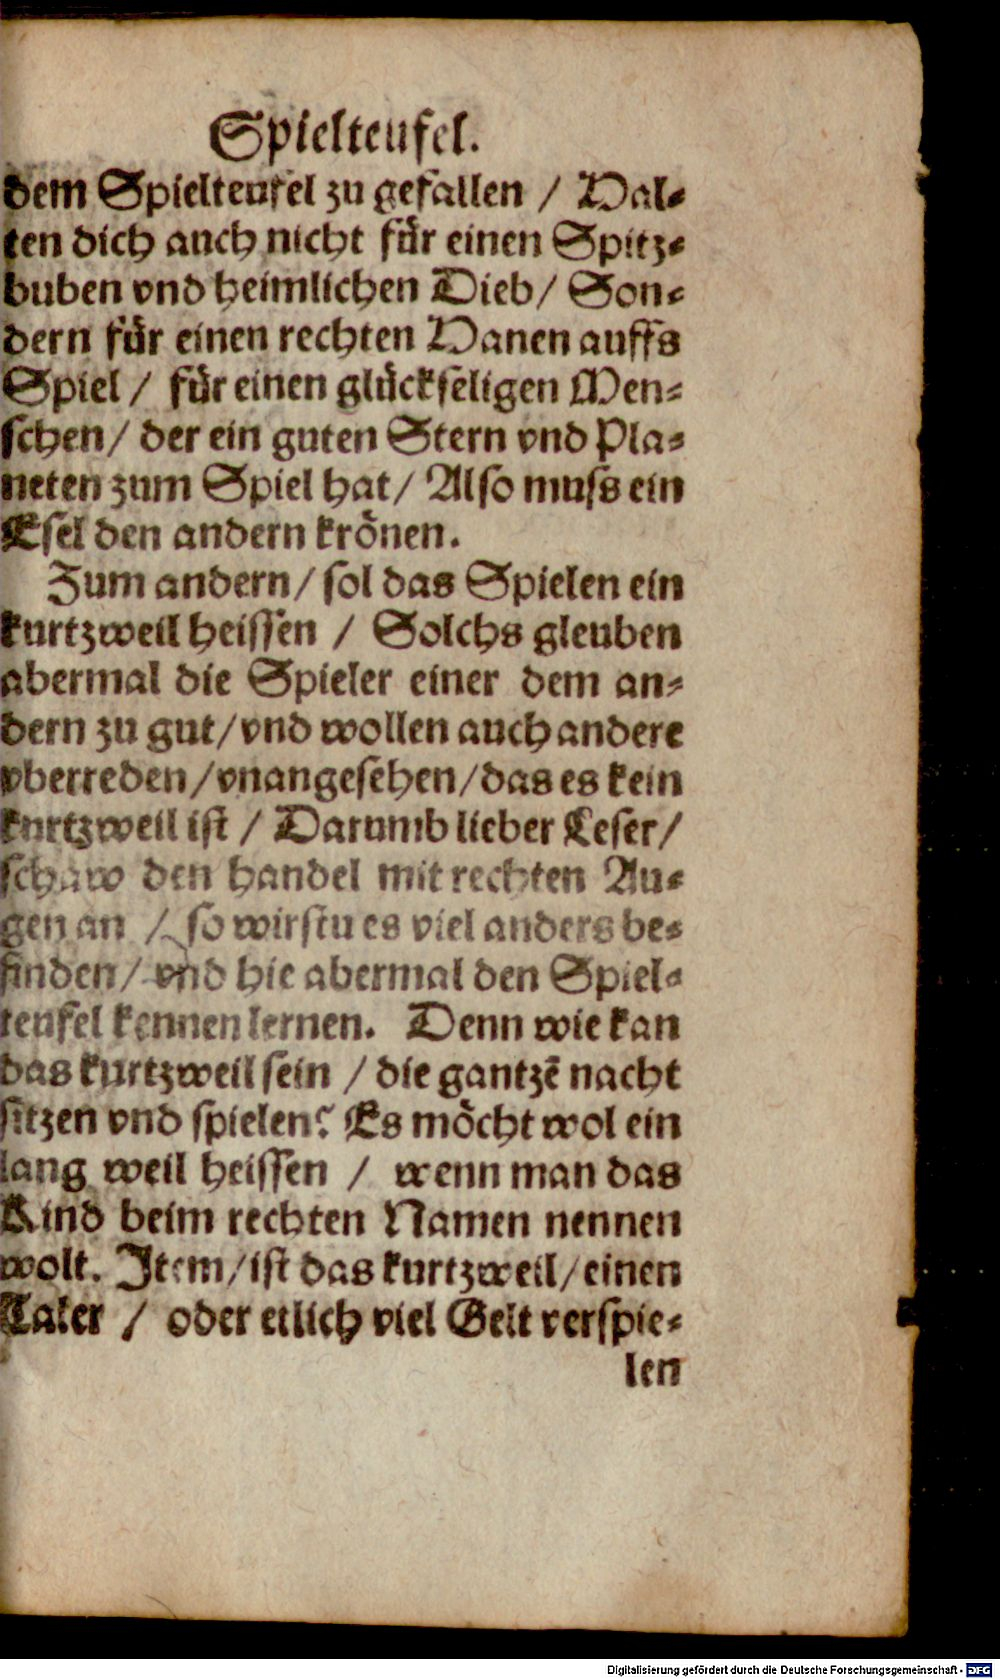 Spielteufel.
dem Spielteufel zu gefallen / Hal-
ten dich auch nicht für einen Spitz-
buben vnd heimlichen Dieb/ Son-
dern für einen rechten Hanen auffs
Spiel / für einen glückseligen Men-
schen/ der ein guten Stern vnd Pla-
neten zum Spiel hat/ Also muss ein
Esel den andern krönen.
Zum andern/ sol das Spielen ein
kurtzweil heissen / Solchs gleuben
abermal die Spieler einer dem an-
dern zu gut/ vnd wollen auch andere
vberreden/ vnangesehen/ das es kein
kurtzweil ist / Darumb lieber Leser/
schaw den handel mit rechten Au-
gen an / so wirstu es viel anders be-
finden/ vnd hie abermal den Spiel-
teufel kennen lernen. Denn wie kan
das kurtzweil sein / die gantzē nacht
sitzen vnd spielen? Es möcht wol ein
lang weil heissen / wenn man das
Kind beim rechten Namen nennen
wolt. Item/ ist das kurtzweil/ einen
Taler / oder etlich viel Gelt verspie-
len
Digitalisierung gefördert durch die Deutsche Forschungsgemeinschaft - DFG